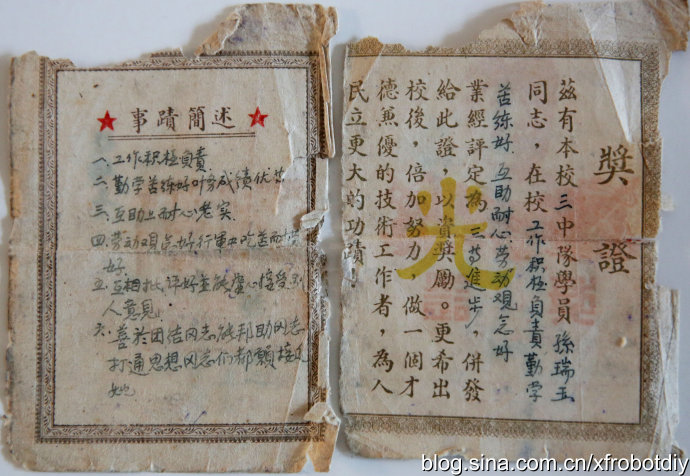 事蹟簡述
一.工作积極負責
二.勤学苦练好叶务成績优
三.互助上耐心老实
四.劳动观点好行軍中吃苦耐劳
好
五.互相批评好並能虚心接受别
人意見
六.善於团结同志能邦助同志
打通思想同志们都願接近
她
獎證
茲有本校三中隊學員孫瑞玉
同志，在校工作积極負責勤学
苦练好互助耐心劳动观念好
業經評定為三等進步，併發
給此證，以資獎勵。更希出
校後，倍加努力，做一個才
德兼優的技術工作者，為人
民立更大的功蹟！
光
blog.sina.com.cn/xfrobotdiy